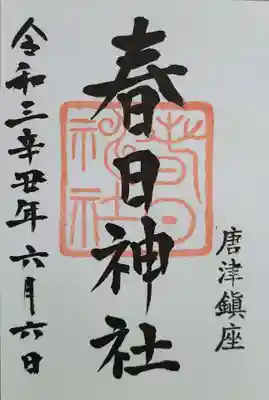 唐津鎮座
春日神社
春日神社
令和三辛丑年六月六日